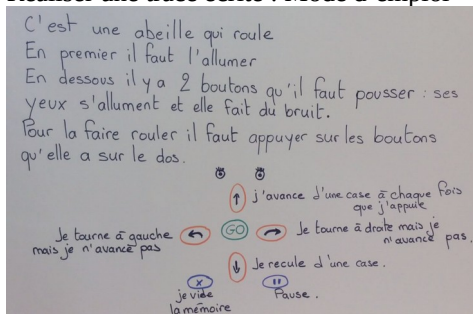 Réaliser une trace écrite : Mode d'emploi
C'est une abeille qui roule
En premier il faut l'allumer
En dessous il y a 2 boutons qu'il faut pousser : ses
yeux s'allument et elle fait du bruit.
Pour la faire rouler il faut appuyer sur les boutons
qu'elle a sur le dos.
j'avance d'une case à chaque fois
que j'appuie
Je tourne à gauche
mais je n'avance pas
GO
Je tourne à droite mais je
n'avance pas.
Je recule d'une case.
je vide
la mémoire
Pause.